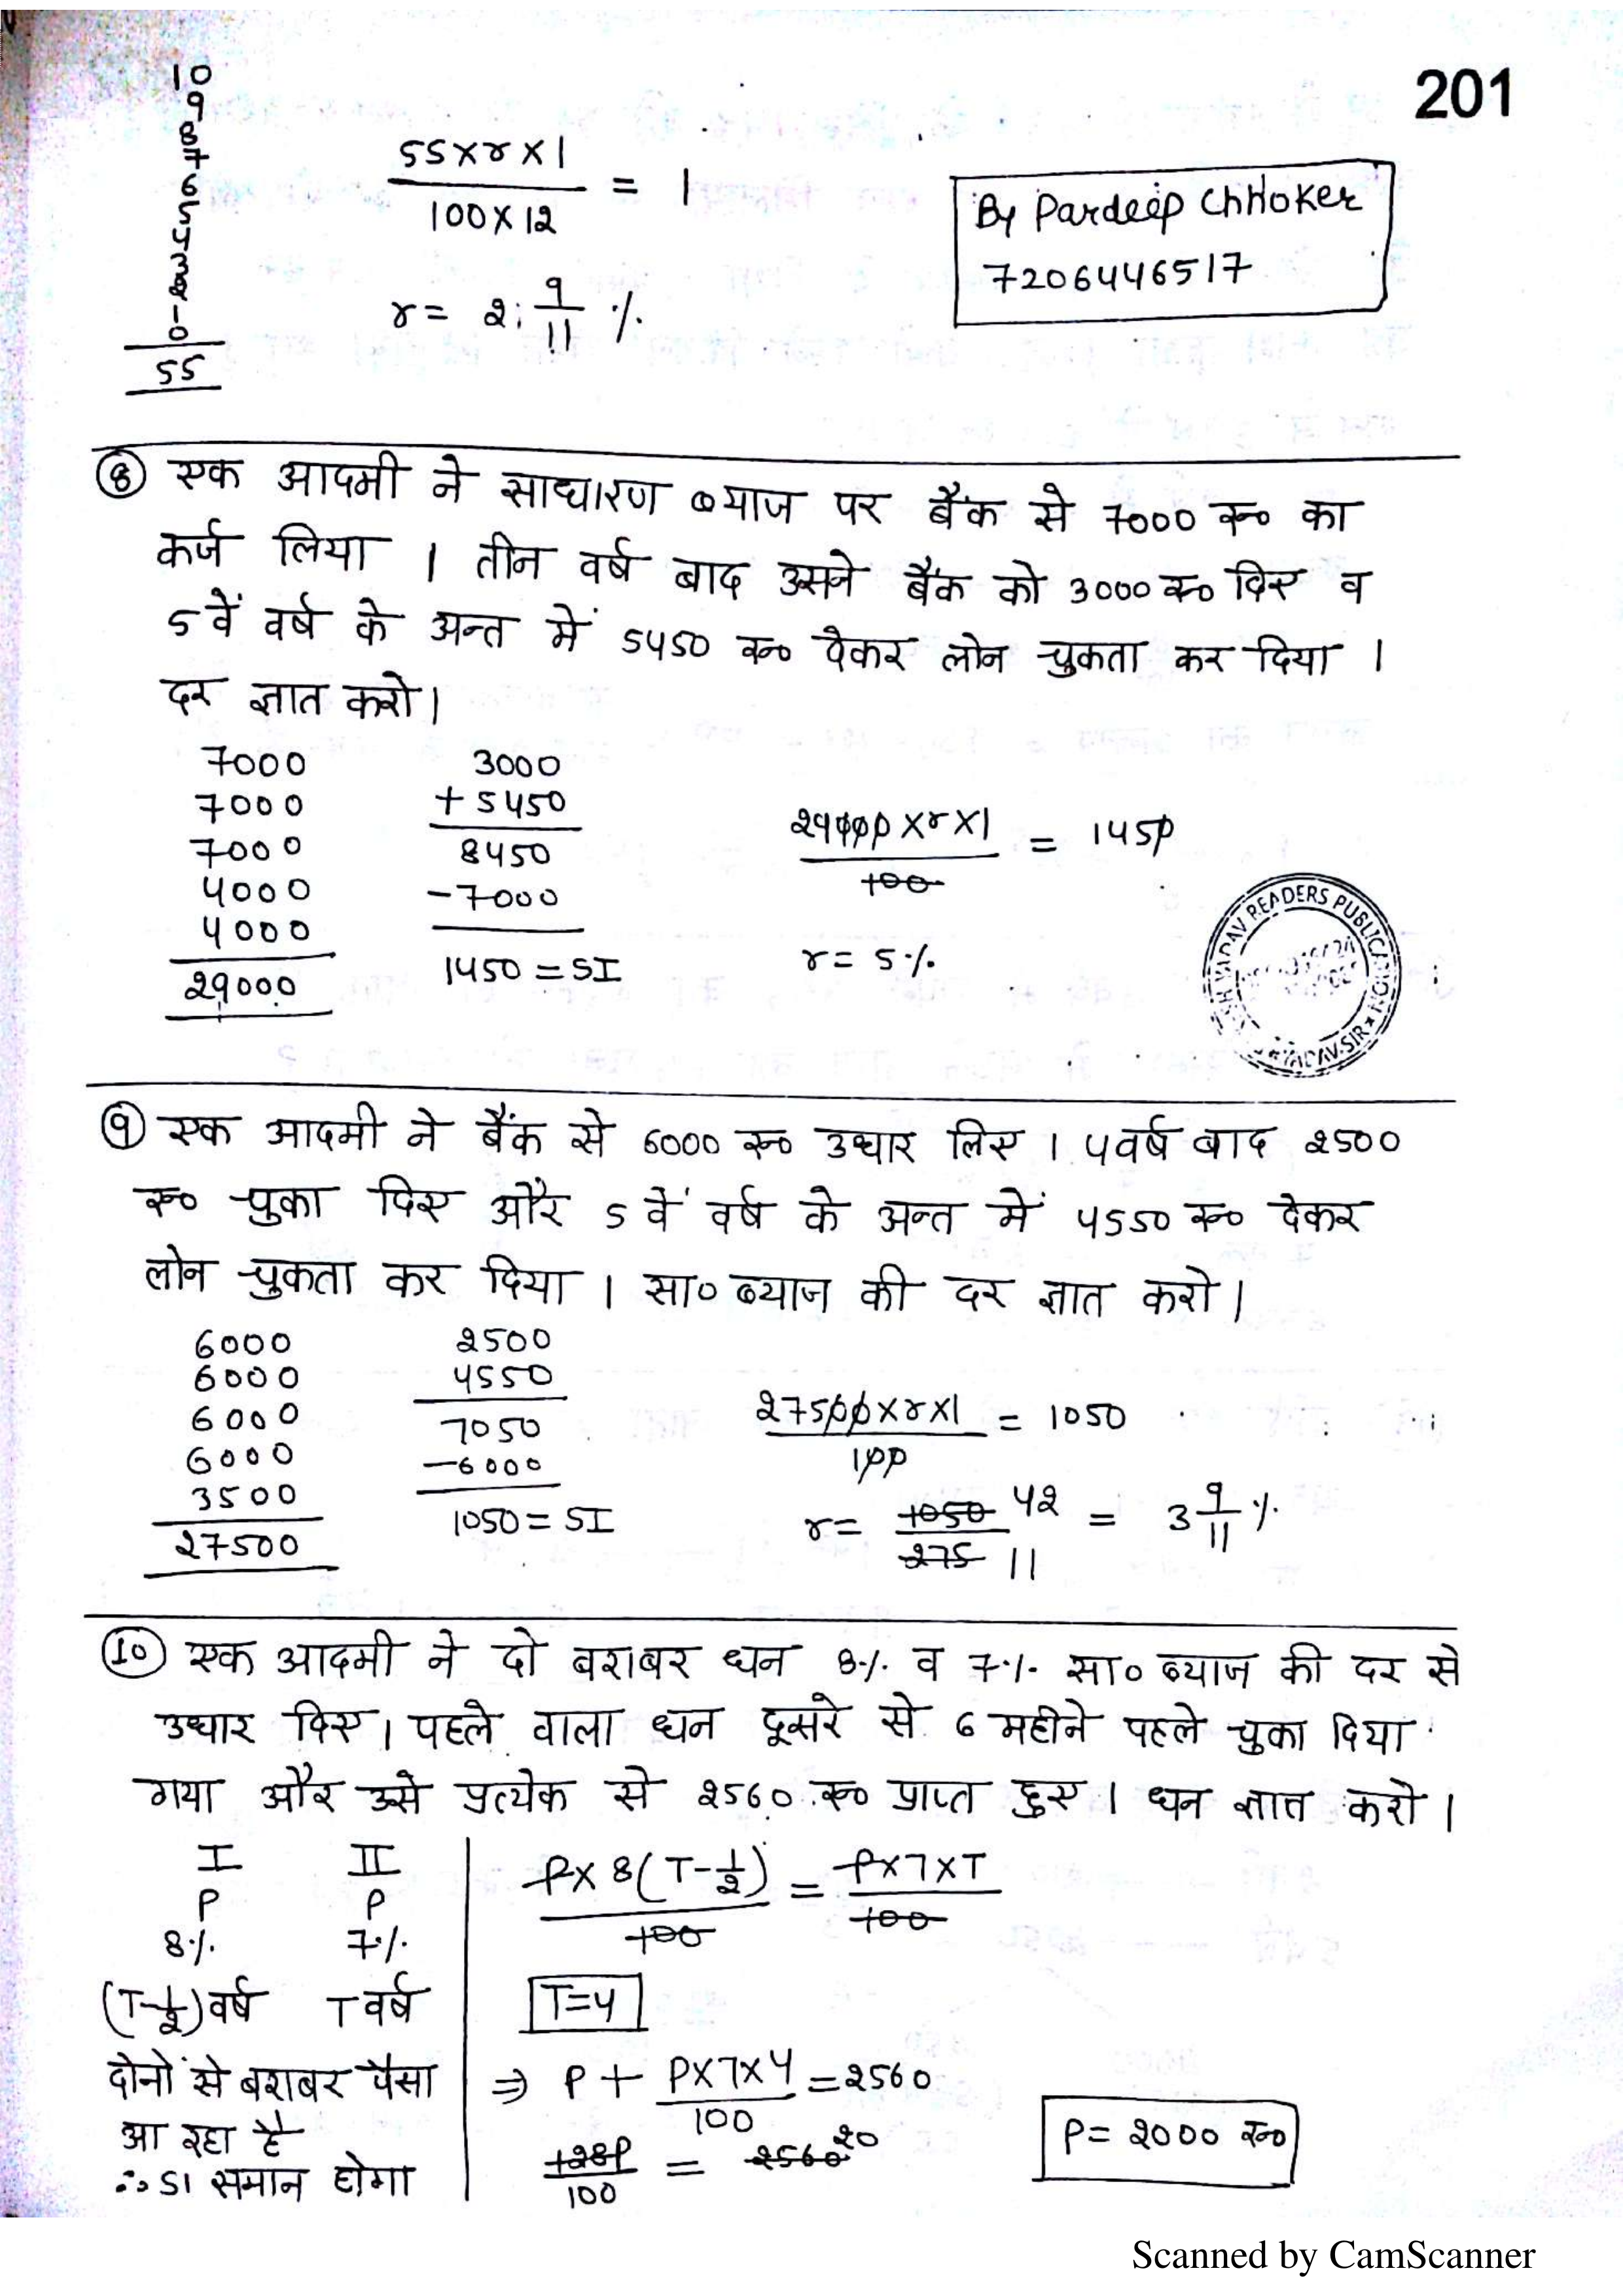 201
10
9
8
7
6
5
4
3
2
1
0
55
55×r×1 / 100×12 = 1
r = 2 9/11 %
By Pardeep Chhoker
7206446517
⑧ एक आदमी ने साधारण ब्याज पर बैंक से 7000 रू० का
कर्ज लिया । तीन वर्ष बाद उसने बैंक को 3000 रू० दिए व
5 वें वर्ष के अन्त में 5450 रू० देकर लोन चुकता कर दिया ।
दर ज्ञात करो।
7000
7000
7000
4000
4000
29000
3000
+ 5450
8450
-7000
1450 = SI
29000×r×1 / 100 = 1450
r = 5%
READERS PUBLICATION
YADAV SIR
⑨ एक आदमी ने बैंक से 6000 रू० उधार लिए । 4 वर्ष बाद 2500
रू० चुका दिए और 5 वें वर्ष के अन्त में 4550 रू० देकर
लोन चुकता कर दिया । सा० ब्याज की दर ज्ञात करो।
6000
6000
6000
6000
3500
27500
2500
4550
7050
-6000
1050 = SI
27500×r×1 / 100 = 1050
r = 1050 42 / 275 11 = 3 9/11 %
⑩ एक आदमी ने दो बराबर धन 8% व 7% सा० ब्याज की दर से
उधार दिए। पहले वाला धन दूसरे से 6 महीने पहले चुका दिया
गया और उसे प्रत्येक से 2560 रू० प्राप्त हुए । धन ज्ञात करो ।
I II
P P
8% 7%
(T-1/2) वर्ष T वर्ष
दोनों से बराबर पैसा
आ रहा है
∴ SI समान होगा
P×8(T-1/2) / 100 = P×7×T / 100
T=4
⇒ P + P×7×4 / 100 = 2560
128P / 100 = 2560 20
P = 2000 रू०
Scanned by CamScanner